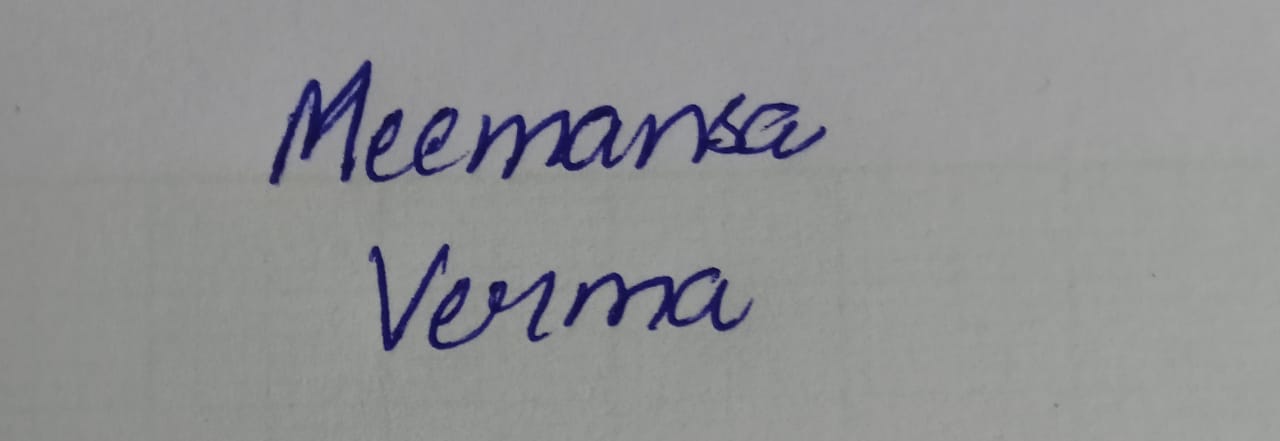 Meemansa
Verma